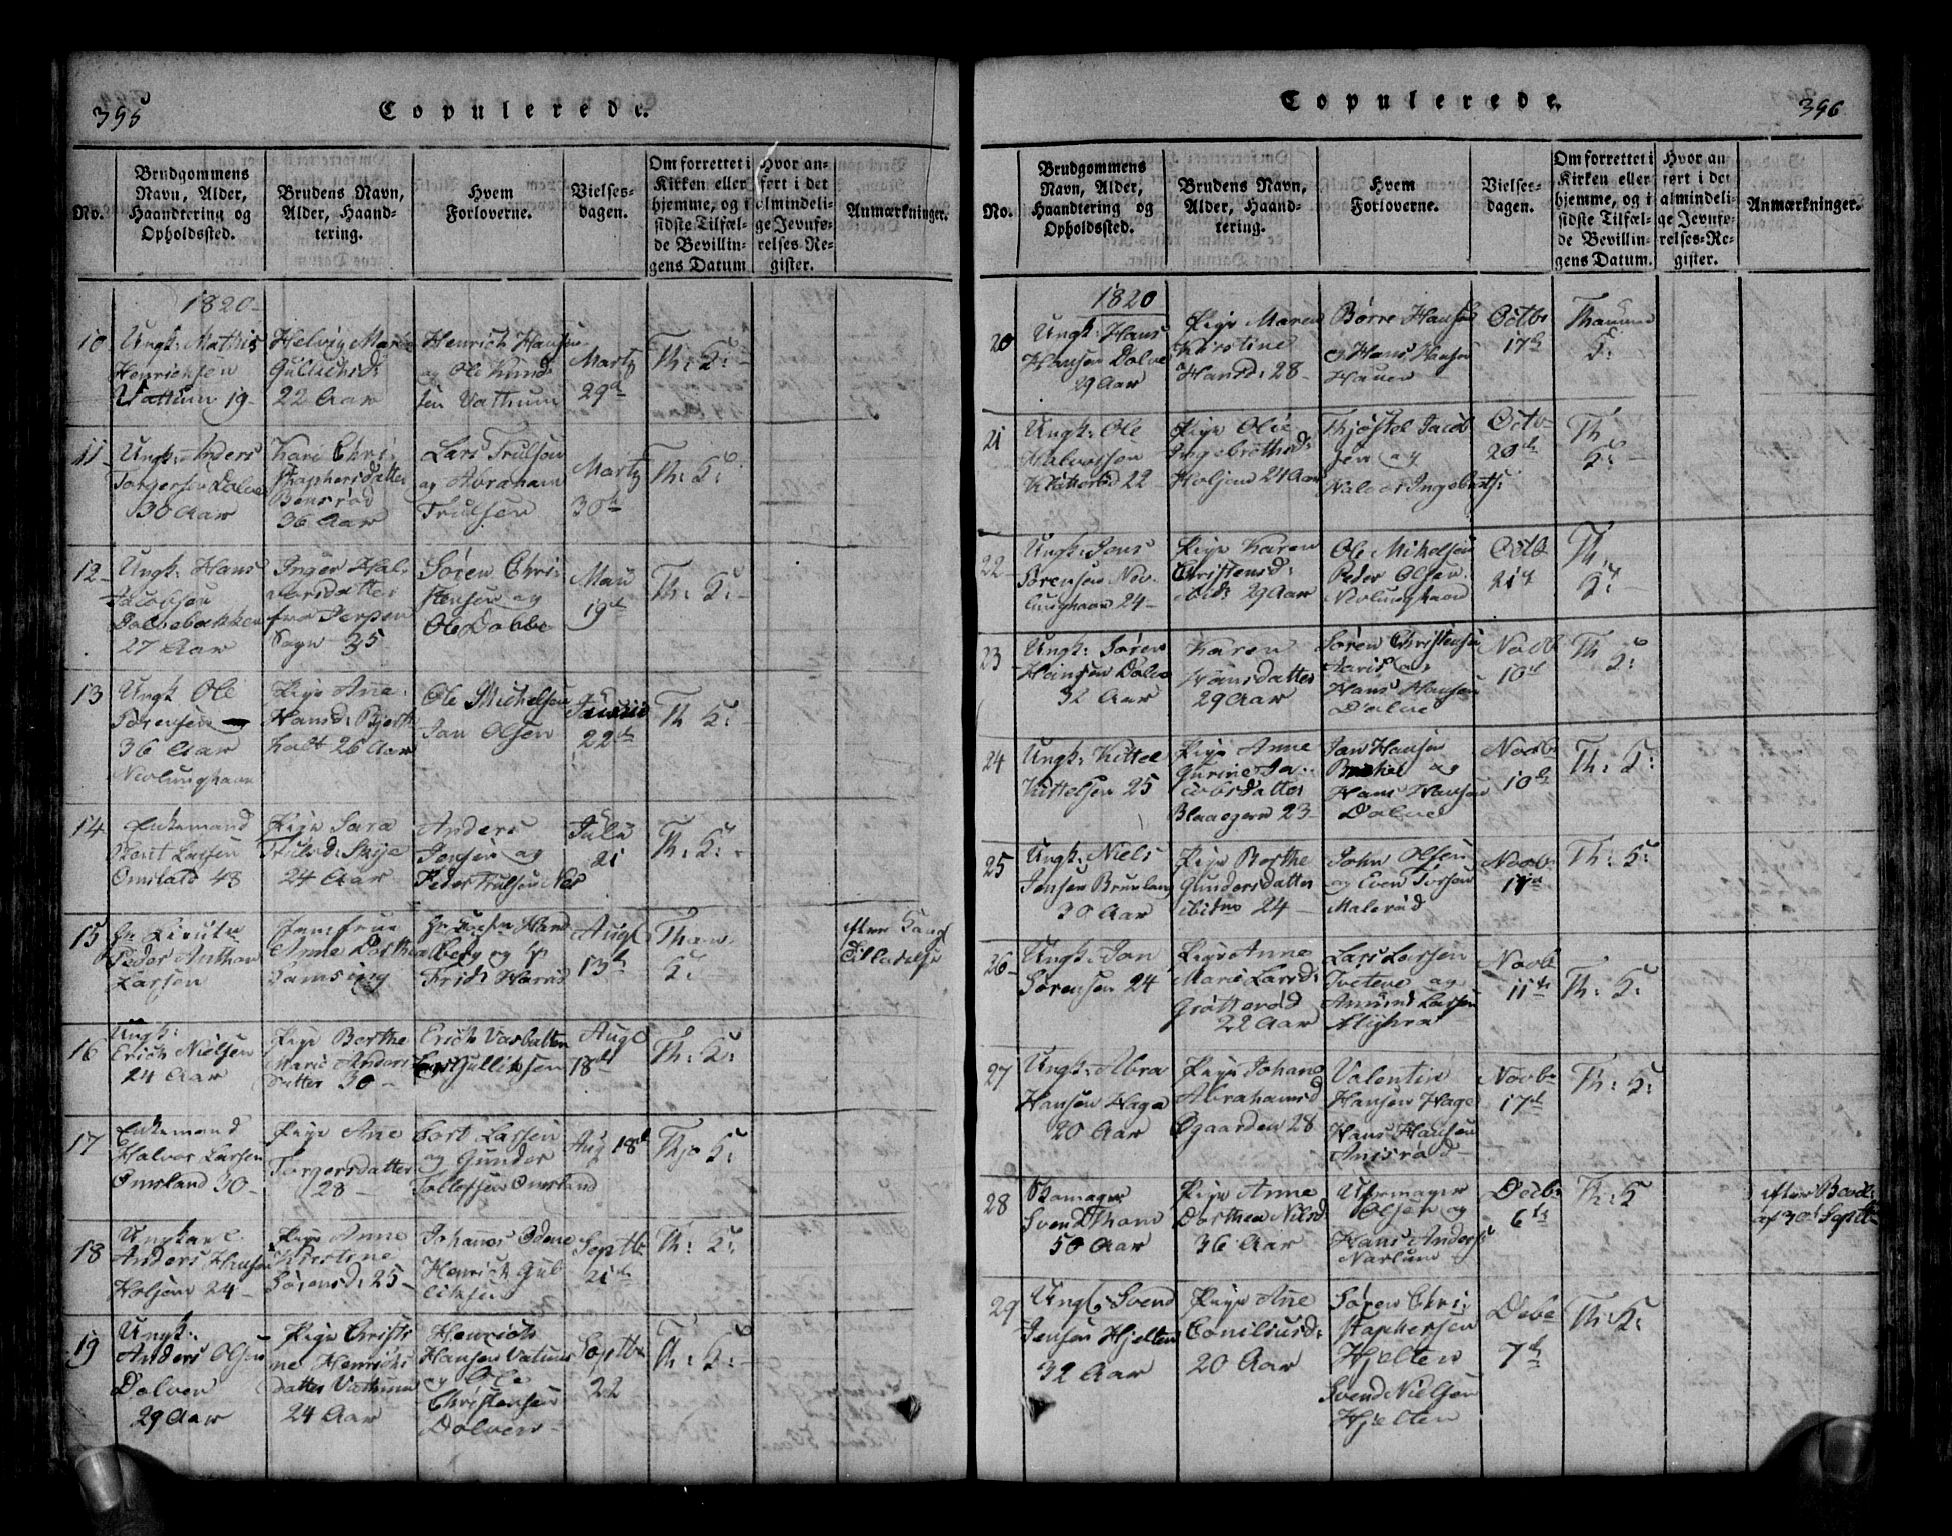 395
Copulerede.
No.
Brudgommens
Navn, Alder,
Haandtering og
Opholdssted.
Brudens Navn,
Alder, Haand-
tering.
Hvem
Forloverne.
Vielses-
dagen.
Om forrettet i
Kirken eller
hjemme, og i
sidste Tilfæl-
de Bevillin-
gens Datum
Hvor an-
ført i det
almindeli-
ge Jevnfø-
relses-Re-
gister.
Anmærkninger.
1820
10
Ungk: Mathis
Henrichsen
Vattum 19
Helvig Marie
Gulichsd:
22 Aar
Henrich Hansen
og Ole Knud
sen Vathum
Marty
29d
Th: K:
11
Ungk: Anders
Torgersen Dolve
30 Aar
Kari Chri
stophersdatter
Bonsrød
36 Aar
Lars Trulsen
og Abraham
Trulsen
Marty
30te
Th: K:
12
Ungk: Hans
Jacobsen
Dolvebakken
27 Aar
Inger Hal-
vorsdatter
fra Jerpen
Sogn 25
Søren Chri
stensen og
Ole Dobbe
Mau
19d
Th: K:
13
Ungk Ole
Sørensen
36 Aar
Nevlunghavn
Pige Ane
Hansd: Bjerk
holt 26 Aar
Ole Michelsen
Jan Olsen
Junii
22de
Th K:
14
Enkemand
Lassen
Omslatd 48
Pige Sara
Trulsd: Skije
24 Aar
Anders
Jonsen og
Peder Trulsen Nes
Juli
21
Th: K:
15
Hr Lieutn
Peder Anthon
Larsen
Jomfrue
Anne Dorthea
Hr
Frid: Harris
Augt
13de
Tham
K:
efter Kongl
Tilladelse
16
Ungk:
Erich Nielsen
24 Aar
Pige Berthe
Marie Anders
datter 30
Erich Vasbatten
Gullichsen
Augt
18de
Th: K:
17
Enkemand
Halvor Larsen
Omsland 30
Pige Ane
Torgersdatter
28
Cort Lassen
og Gunder
Tollefsen Omsland
Aug 18de
Thjo K:
18
Ungkarl
Anders Hansen
Holjem 24
Pige Anne
Kirstine
Sørensd: 25
Johanes Odene
Henrich Gul
lichsen
Septb:
21de
Th: K:
19
Ungk:
Anders Olsen
Dolven
29 Aar
Pige Christi
ne Henrichs
datter Vathum
24 Aar
Henrich
Hansen Vatum
og Ole
Christensen
Dolven
Septb
22
Th: K:
396
Copulerede.
No.
Brudgommens
Navn, Alder,
Haandtering og
Opholdssted.
Brudens Navn,
Alder, Haand-
tering.
Hvem
Forloverne.
Vielses-
dagen.
Om forrettet i
Kirken eller
hjemme, og i
sidste Tilfæl-
de Bevillin-
gens Datum.
Hvor an
ført i det
almindeli-
ge Jevnfø-
relses-Re-
gister.
Anmærkninger.
1820
20
Ungk: Hans
Hansen Dolve
29 Aar
Pige Maren
Kirstine
Hansd: 28
Børre Hansen
og Hans Hansen
Hauen
Octb:
17de
K:
21
Ungk: Ole
Halvorsen
22
Pige Olie
Ingebrethsd:
Holjem 24 Aar
Thjøstel Jacob
sen og
Halvor Ingebrets:
Octb
20de
Th
K:
22
Ungk: Jens
Sørensen Nev
lunghavn 24
Pige Karen
Christensd:
ibid: 29 Aar
Ole Mikelsen
Peder Olsen
Nevlunghavn
Octb
21d
Th
K:
23
Ungk: Søren
Hansen Dolve
32 Aar
Karen
Hansdatter
29 Aar
Søren Christensen
og
Hans Hansen
Dolve
Novb
10de
Th K:
24
Ungk: Kittel
Kittelsen 25
Pige Anne
Gurine Ja-
cobsdatter
Blaagern 23
Jan Hansen
og
Hans Hansen
Dolve
Novb
10de
Th: K:
25
Ungk: Niels
Jensen Brunlan
30 Aar
Pige Berthe
Gundersdatter
ibidm 24
John Olsen
og Even Torsen
Malerød
Novb
Th: K:
26
Ungk: Jan
Sørensen 24
Pige Anne
Marie Larsd:
Grøtterød
22 Aar
Lars Larsen
Tvetene og
Amund Larsen
Novb
11te
Th: K:
27
Ungk: Abra
Hansen Haga
20 Aar
Pige Johane
Abrahamsd
Ogaarden 28
Valentin
Hansen Hage
Hans Hansen
Anisrød
Novb:
17de
Th: K:
28
Skomager
Svend Tham
50 Aar
Pige Anne
Dorthea Nilsd
36 Aar
Uhrmager
Olsen og
Hans Anders:
Narlum
Decb:
6te
Th: K
efter Bevil:
af 30 Septb
29
Ungk Svend
Jensen Hjelten
32 Aar
Pige Ane
Conilsiusd:
20 Aar
Søren Chri
stophersen
Hjelten
Svend Nielsen
Hjelten
Decbr
7de
Th: K: